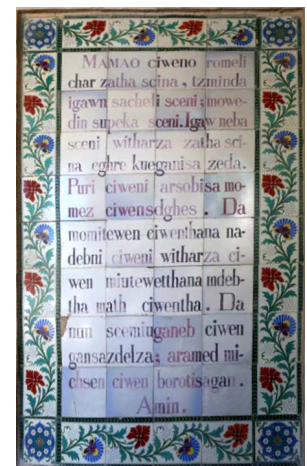 MAMAO ciweno romeli
char zatha scina , tzminda
igawn sacheli sceni ; mowe-
din supeka sceni. Igaw neba
sceni witharza zatha sci-
na eghre kueganisa zeda.
Puri ciweni arsobisa mo-
mez ciwensdghes . Da
momitewen ciwenthana na-
debni ciweni witharza ci-
wen miutewetthana mdeb-
tha math ciwentha . Da
nun scemiuganeb ciwen
gansazdelza ; aramed mi-
chsen ciwen borotisagan .
Amin .